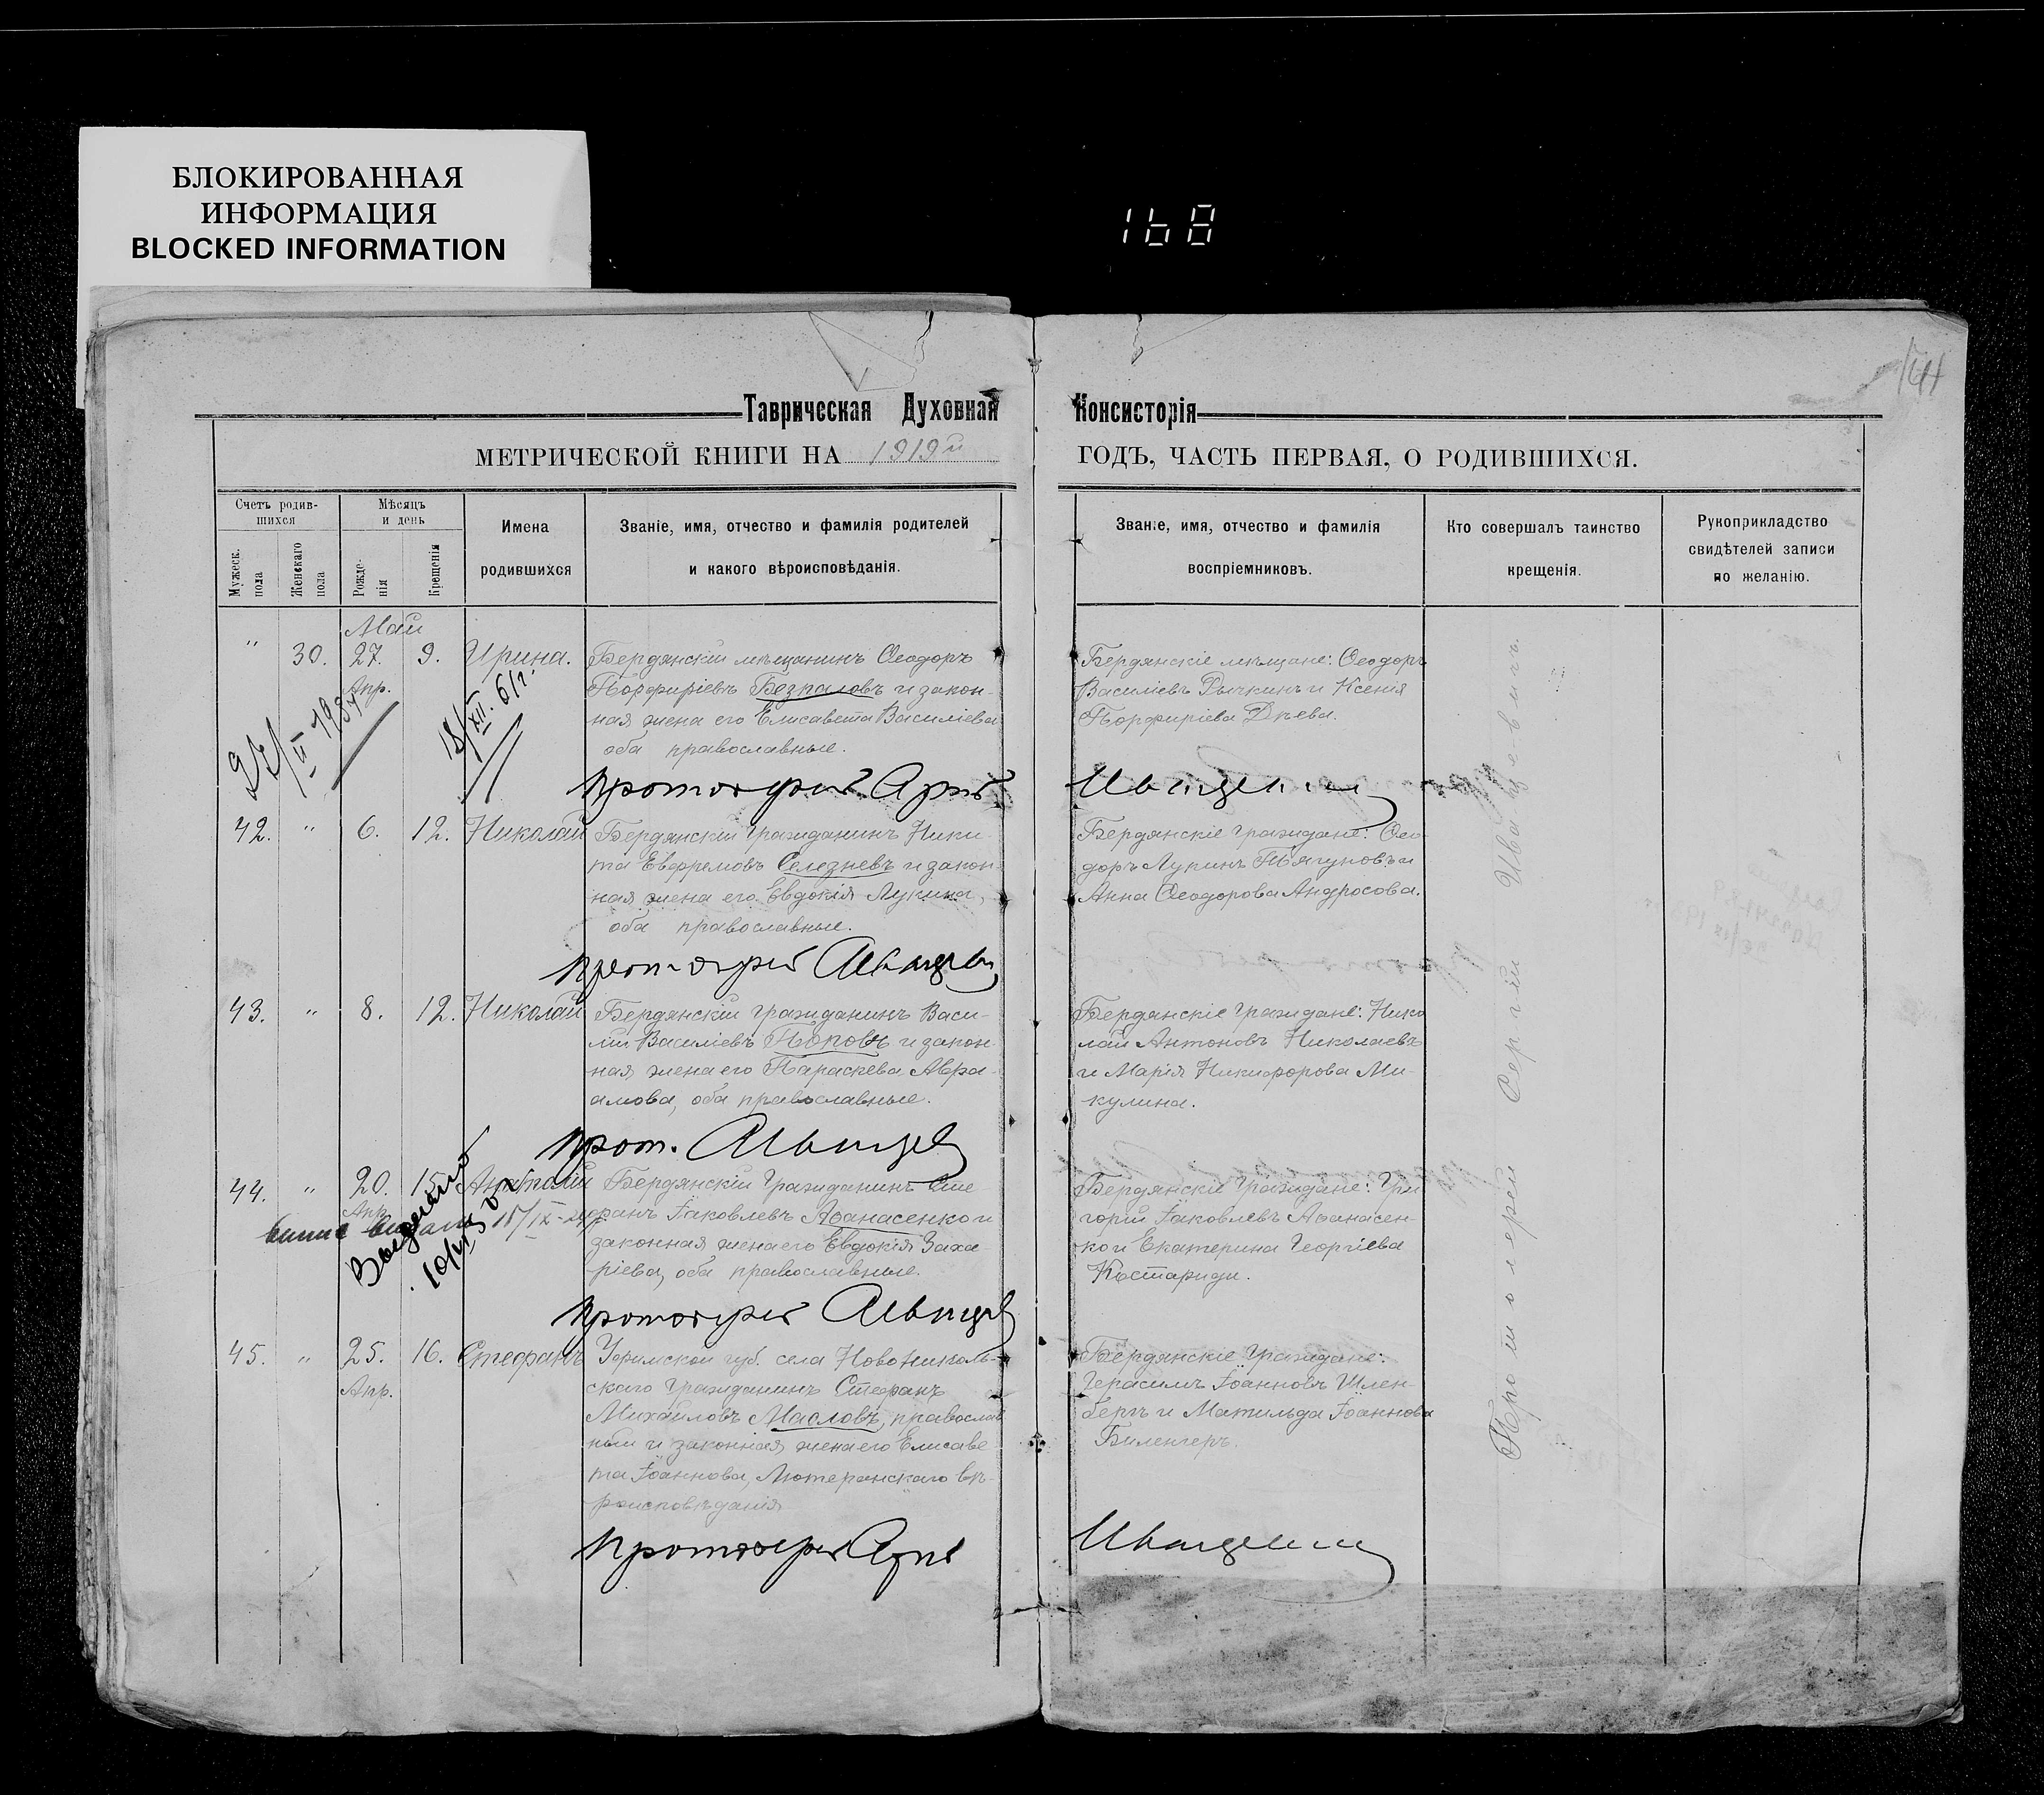 БЛОКИРОВАННАЯ
ИНФОРМАЦИЯ
BLOCKED INFORMATION
168
Таврическая Духовная Консисторія
МЕТРИЧЕСКОЙ КНИГИ НА 1919й ГОДЪ, ЧАСТЬ ПЕРВАЯ, О РОДИВШИХСЯ.
Счетъ родив-
шихся
Мужеск.
пола
Женскаго
пола
Мѣсяцъ
и день
Рожде-
нія
Крещенія
Имена
родившихся
Званіе, имя, отчество и фамилія родителей
и какого вѣроисповѣданія.
Званіе, имя, отчество и фамилія
воспріемниковъ.
Кто совершалъ таинство
крещенія.
Рукоприкладство
свидѣтелей записи
по желанію.
Май
" 30. 27. 9. Ирина.
Апр.
Бердянскій мѣщанинъ Ѳеодоръ
Порфиріевъ Безпаловъ и закон-
ная жена его Елисавета Василіева
оба православные.
Бердянскіе мѣщане: Ѳеодоръ
Василіевъ Рычкинъ и Ксенія
Порфиріева Днева.
18/XII. 61г.
Протоіерей Сергій Иваницкій
42. " 6. 12. Николай
Бердянскій гражданинъ Ники-
та Евфремовъ Селезневъ и закон-
ная жена его Евдокія Лукина,
оба православные.
Бердянскіе граждане: Ѳео-
доръ Лукинъ Тягуновъ и
Анна Ѳеодорова Андросова.
Протоіерей
43. " 8. 12. Николай
Бердянскій гражданинъ Васи-
лій Василіевъ Поповъ и закон-
ная жена его Параскева Авра-
амова, оба православные.
Бердянскіе граждане: Нико
лай Антоновъ Николаевъ
и Марія Никифорова Ми-
кулина.
Прот.
44. " 20. 15. Анатолій
Апр.
Бердянскій гражданинъ Сте
фанъ Іаковлевъ Аѳанасенко и
законная жена его Евдокія Заха-
ріева, оба православные.
Бердянскіе граждане: Гри
горій Іаковлевъ Аѳанасен-
ко и Екатерина Георгіева
Костариди.
Протоіерей
45. " 25. 16. Стефанъ
Апр.
Уфимской губ. села Новоникель-
скаго гражданинъ Стефанъ
Михайловъ Масловъ, православ
ный и законная жена его Елисаве
та Іоаннова, Лютеранскаго вѣ-
роисповѣданія
Бердянскіе граждане:
Герасимъ Іоанновъ Шлен-
бергъ и Матильда Іоаннова
Биленгеръ.
Протоіерей
Протоіерей Сергій